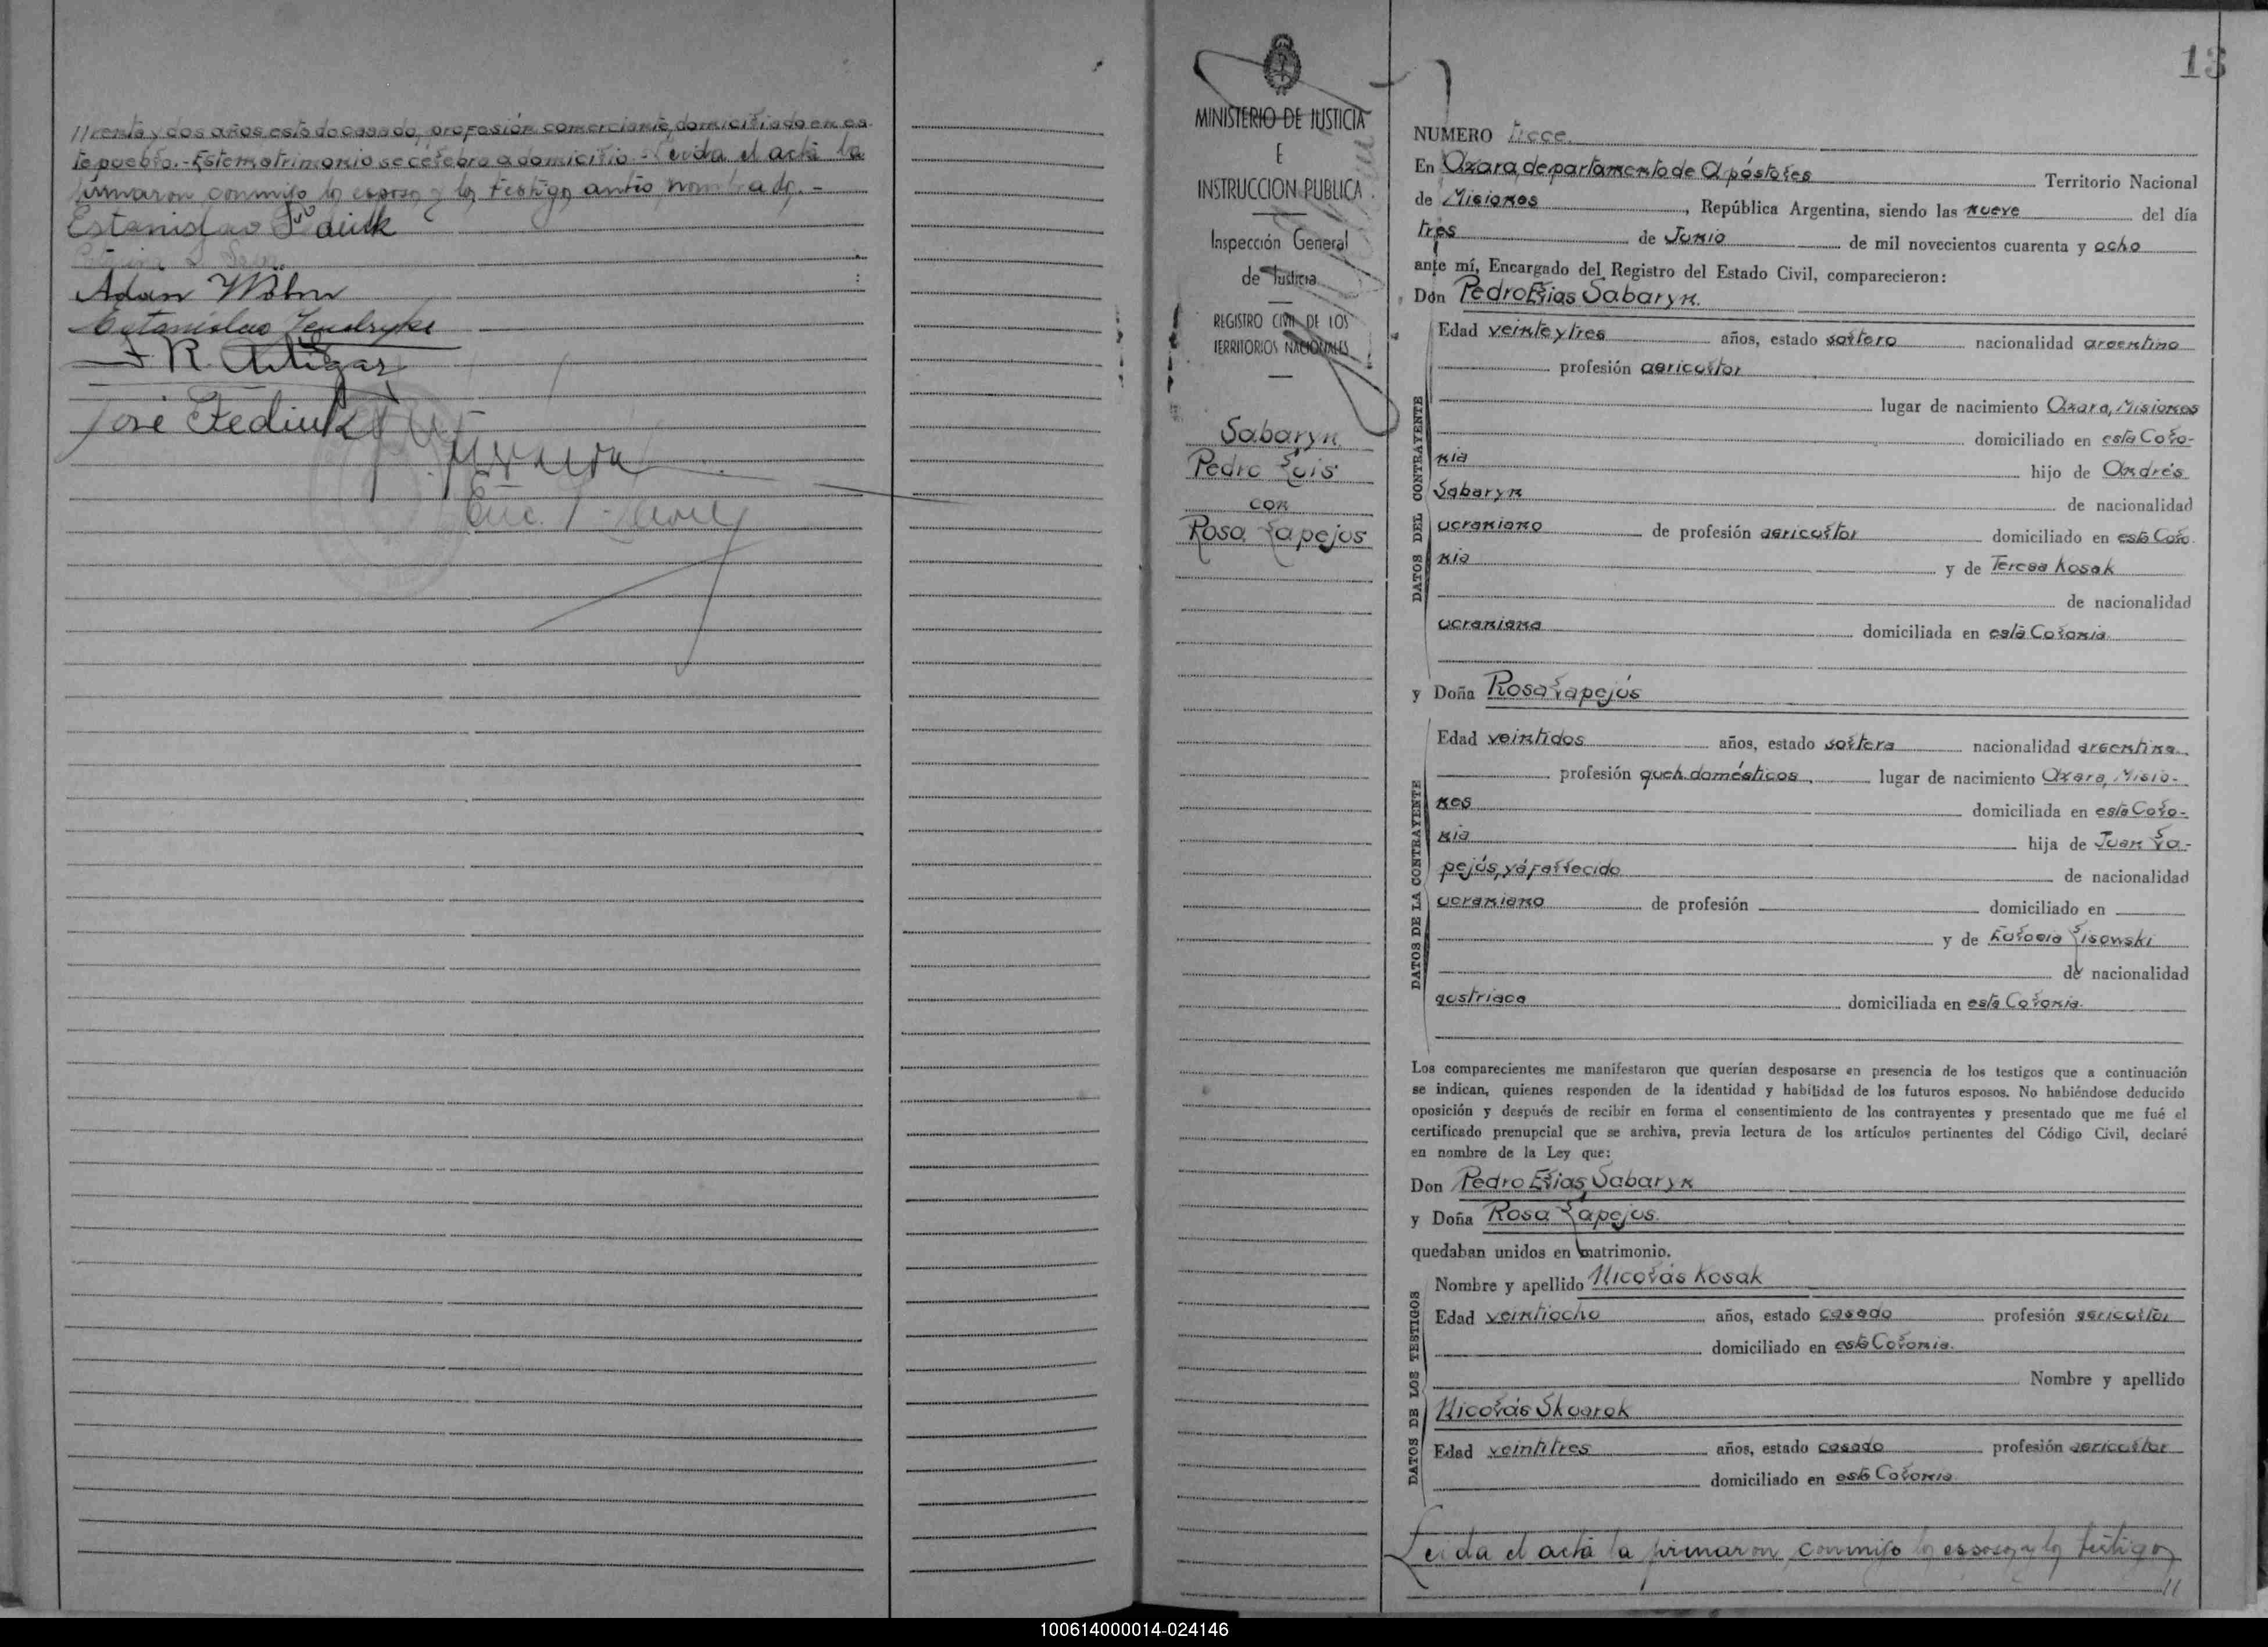 //renta y dos años estado casado, profesión comerciante, domiciliado en es-
te pueblo.- Este matrimonio se celebra a domicilio - Leída el acta la
firmaron conmigo los esposos y los testigos antes nombrados.-
Estanislao
Adan
Estanislao
R. Artigas
José Fediuk
Enc.
MINISTERIO DE JUSTICIA
E
INSTRUCCION PUBLICA
Inspección General
de Justicia
REGISTRO CIVIL DE LOS
TERRITORIOS NACIONALES
Sabaryn
Pedro Luis
con
Rosa Lapejus
13
NUMERO trece.
En Azara, departamento de Apóstoles Territorio Nacional
de Misiones, República Argentina, siendo las nueve del día
tres de Junio de mil novecientos cuarenta y ocho
ante mí, Encargado del Registro del Estado Civil, comparecieron:
Don Pedro Elias Sabaryn.
DATOS DEL CONTRAYENTE
Edad veinte y tres años, estado soltero nacionalidad argentino
profesión agricultor
lugar de nacimiento Azara, Misiones
domiciliado en esta Colo-
nia hijo de Andrés
Sabaryn de nacionalidad
ucraniano de profesión agricultor domiciliado en esta Colo-
nia y de Teresa Kosak
de nacionalidad
ucraniana domiciliada en esta Colonia
y Doña Rosa Lapejús
DATOS DE LA CONTRAYENTE
Edad veintidos años, estado soltera nacionalidad argentina
profesión queh. domésticos lugar de nacimiento Azara, Misio-
nes domiciliada en esta Colo-
nia hija de Juan La-
pejús, yá fallecido de nacionalidad
ucraniano de profesión domiciliado en
y de Eulogia Lisowski
de nacionalidad
austriaca domiciliada en esta Colonia.
Los comparecientes me manifestaron que querían desposarse en presencia de los testigos que a continuación
se indican, quienes responden de la identidad y habilidad de los futuros esposos. No habiéndose deducido
oposición y después de recibir en forma el consentimiento de los contrayentes y presentado que me fué el
certificado prenupcial que se archiva, previa lectura de los artículos pertinentes del Código Civil, declaré
en nombre de la Ley que:
Don Pedro Elias Sabaryn
y Doña Rosa Lapejus.
quedaban unidos en matrimonio.
DATOS DE LOS TESTIGOS
Nombre y apellido Nicolás Kosak
Edad veintiocho años, estado casado profesión agricultor
domiciliado en esta Colonia.
Nombre y apellido
Nicolás Skvarok
Edad veintitres años, estado casado profesión agricultor
domiciliado en esta Colonia
Leída el acta la firmaron conmigo los esposos y los testigos
//
100614000014-024146